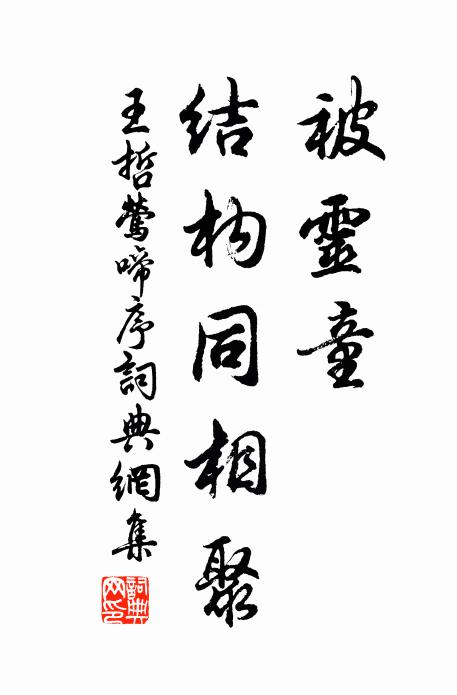 被靈童
结构同相聚
王哲鶯啼序詞典網集
詞典網印